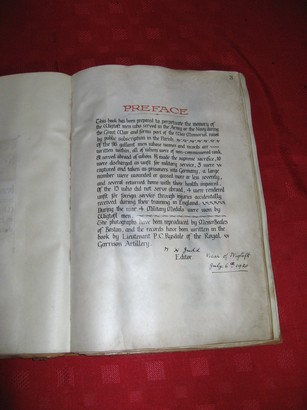 PREFACE
This book has been prepared to perpetuate the memory of
the Wigtoft men who served in the Army or the Navy during
the Great War and forms part of the War Memorial raised
by public subscription in the Parish.
Of the 96 gallant men whose names and records are
written within, all of whom were of non-commissioned rank,
81 served abroad of whom 19 made the supreme sacrifice, 18
were discharged as unfit for military service, 3 were
captured and taken as prisoners into Germany, a large
number were wounded or gassed more or less severely,
and several returned home with their health impaired,
of the 15 who did not serve abroad, 4 were rendered
unfit for foreign service through injuries accidentally
received during their training in England.
During the war 4 Military Medals were won by
Wigtoft men
The photographs have been reproduced by
of Boston, and the records have been written in the
book by Lieutenant P.C. of the Royal
Garrison Artillery.
Editor Vicar of Wigtoft
July 6th 1921